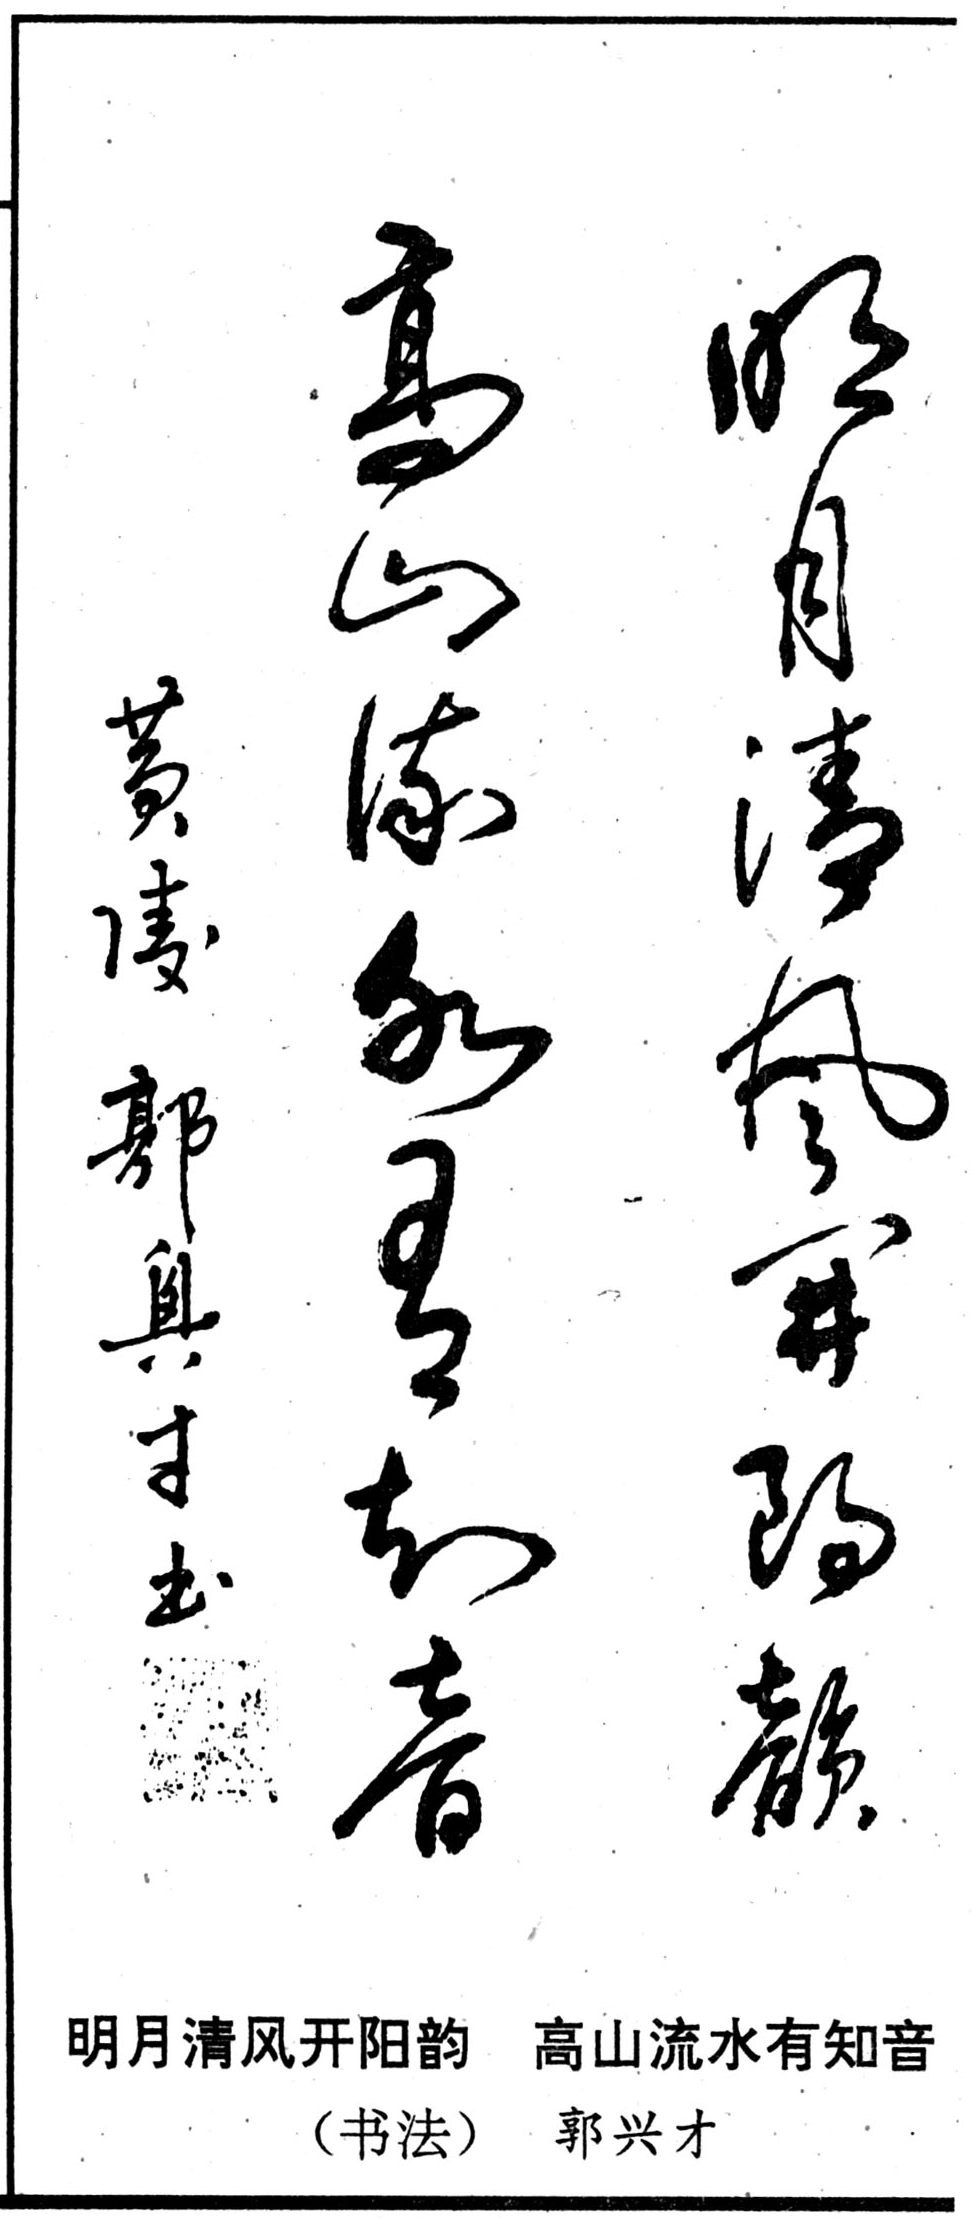 明月清风开阳韵
高山流水有知音
黄陵 郭兴才书
明月清风开阳韵 高山流水有知音
（书法） 郭兴才